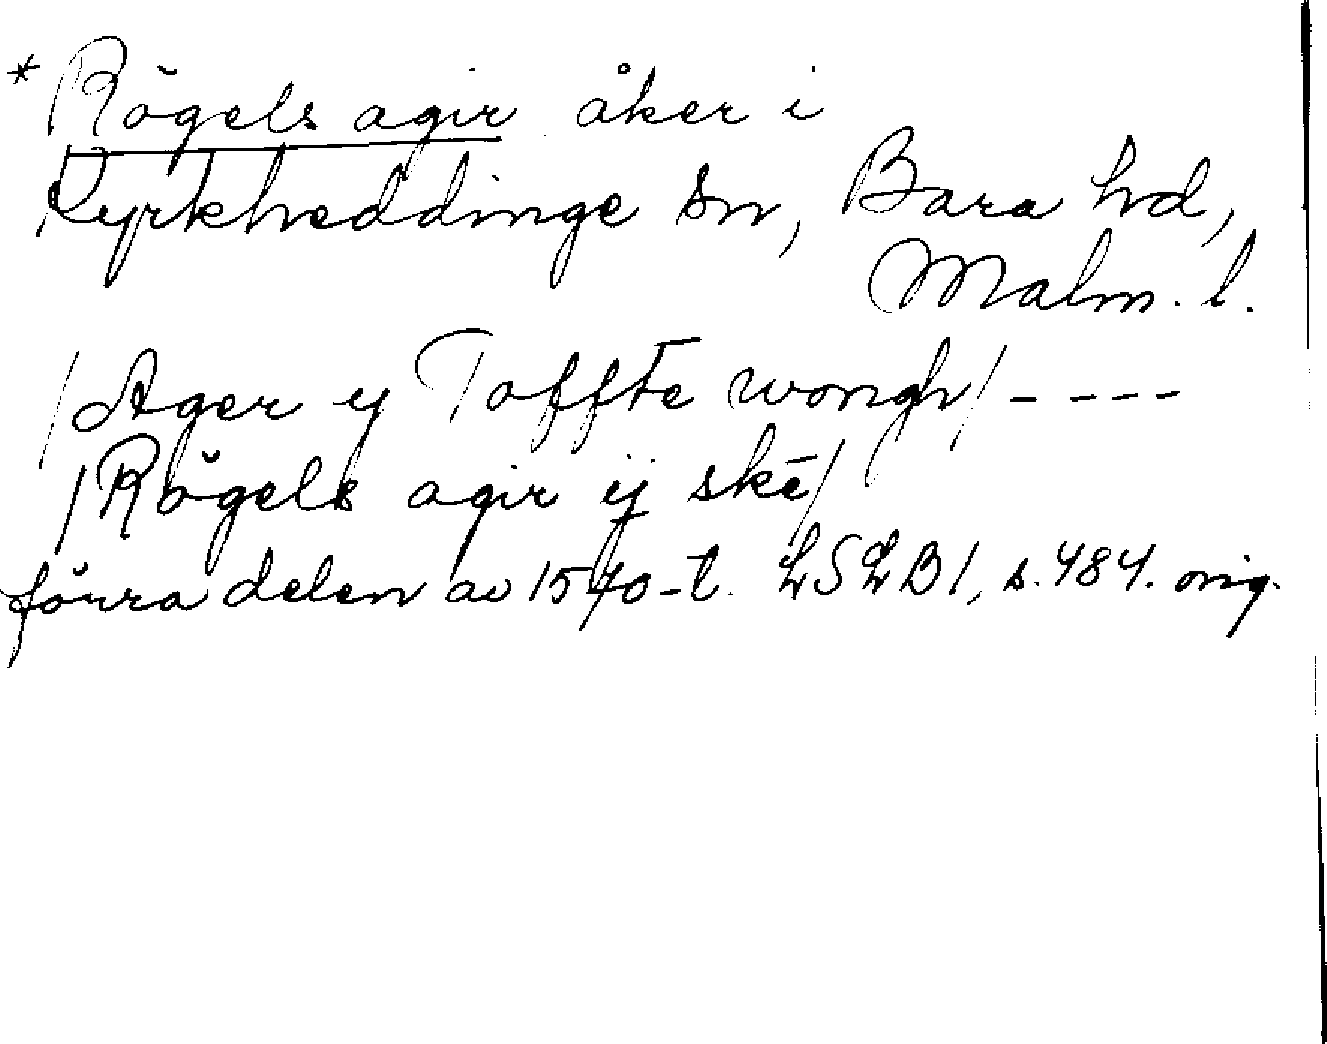 *Rögels agir åker i
Kyrkheddinge sn, Bara hd,
Malm. l.
/Ager y Toffte wongh/ ----
/Rögels agir ij skē/
förra delen av 1570-t. LSLB1, s. 484. orig.